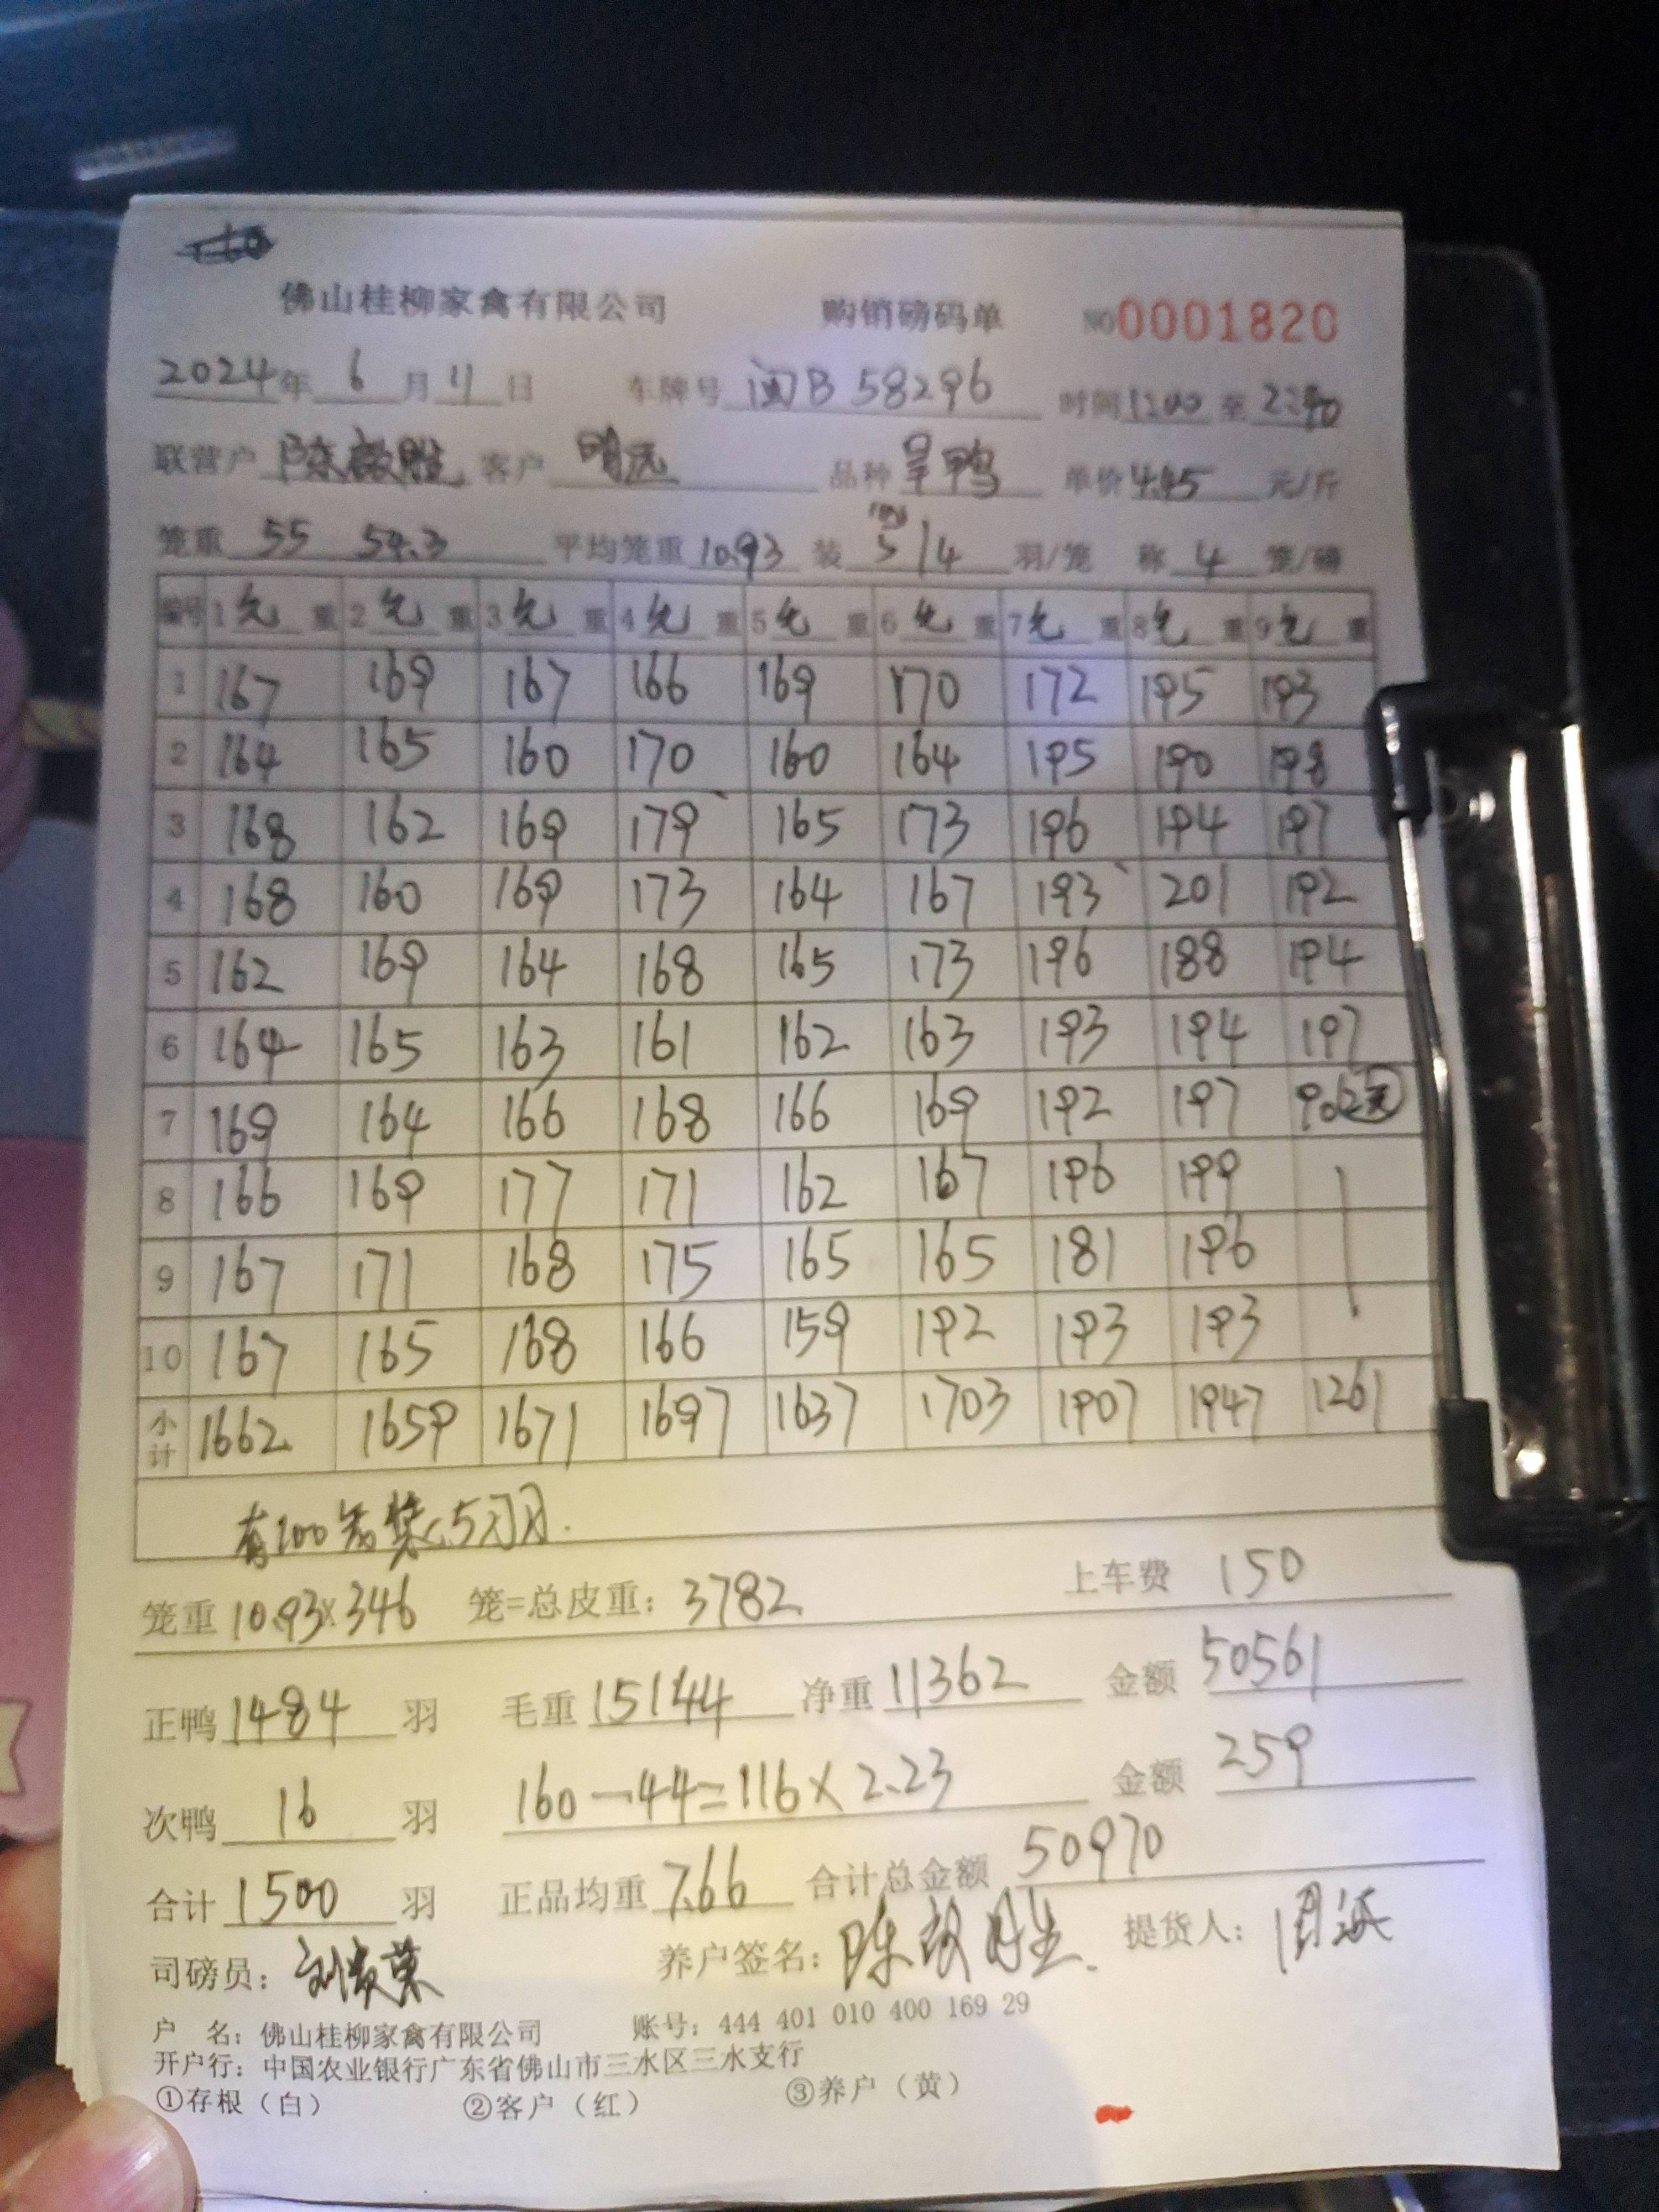 佛山桂柳家禽有限公司 购销磅码单 NO0001820
2024年 6 月 11 日 车牌号 闽B 58296 时间1200 至
联营户 客户 明远 品种 旱鸭 单价4.45 元/斤
笼重 55 54.3 平均笼重 10.93 装 5/4 羽/笼 称 4 笼/磅
编号 1 重 2 重 3 重 4 重 5 重 6 重 7 重 8 重 9 重
1 167 169 167 166 169 170 172 195 193
2 164 165 160 170 160 164 195 190 198
3 168 162 169 179 165 173 196 194 197
4 168 160 169 173 164 167 193 201 192
5 162 169 164 168 165 173 196 188 194
6 164 165 163 161 162 163 193 194 197
7 169 164 166 168 166 169 192 197
8 166 169 177 171 162 167 196 199
9 167 171 168 175 165 165 181 196
10 167 165 168 166 159 192 193 193
小计 1662 1659 1671 1697 1637 1703 1907 1947 1261
有100 5
笼重 10.93×346 笼=总皮重: 3782 上车费 150
正鸭 1484 羽 毛重 15144 净重 11362 金额 50561
次鸭 16 羽 160-44=116×2.23 金额 259
合计 1500 羽 正品均重 7.66 合计总金额 50970
司磅员: 养户签名: 提货人:
户 名: 佛山桂柳家禽有限公司 账号: 444 401 010 400 169 29
开户行: 中国农业银行广东省佛山市三水区三水支行
①存根(白) ②客户(红) ③养户(黄)